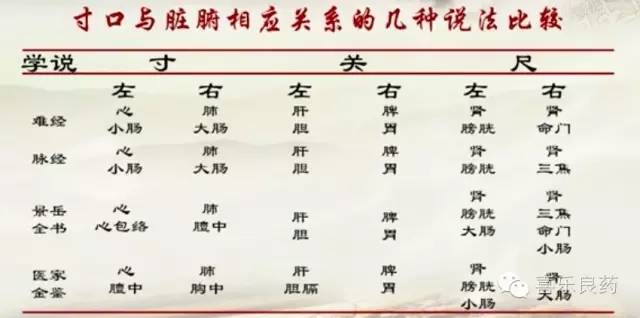 寸口与脏腑相应关系的几种说法比较
学说 寸 关 尺
左 右 左 右 左 右
难经 心 肺 肝 脾 肾 肾
小肠 大肠 胆 胃 膀胱 命门
脉经 心 肺 肝 脾 肾 肾
小肠 大肠 胆 胃 膀胱 三焦
景岳 心 肺 肝 脾 肾 肾
全书 心包络 膻中 胆 胃 膀胱 三焦
大肠 命门
小肠
医家 心 肺 肝 脾 肾 肾
金鉴 膻中 胸中 胆膈 胃 膀胱 大肠
小肠
喜乐良药